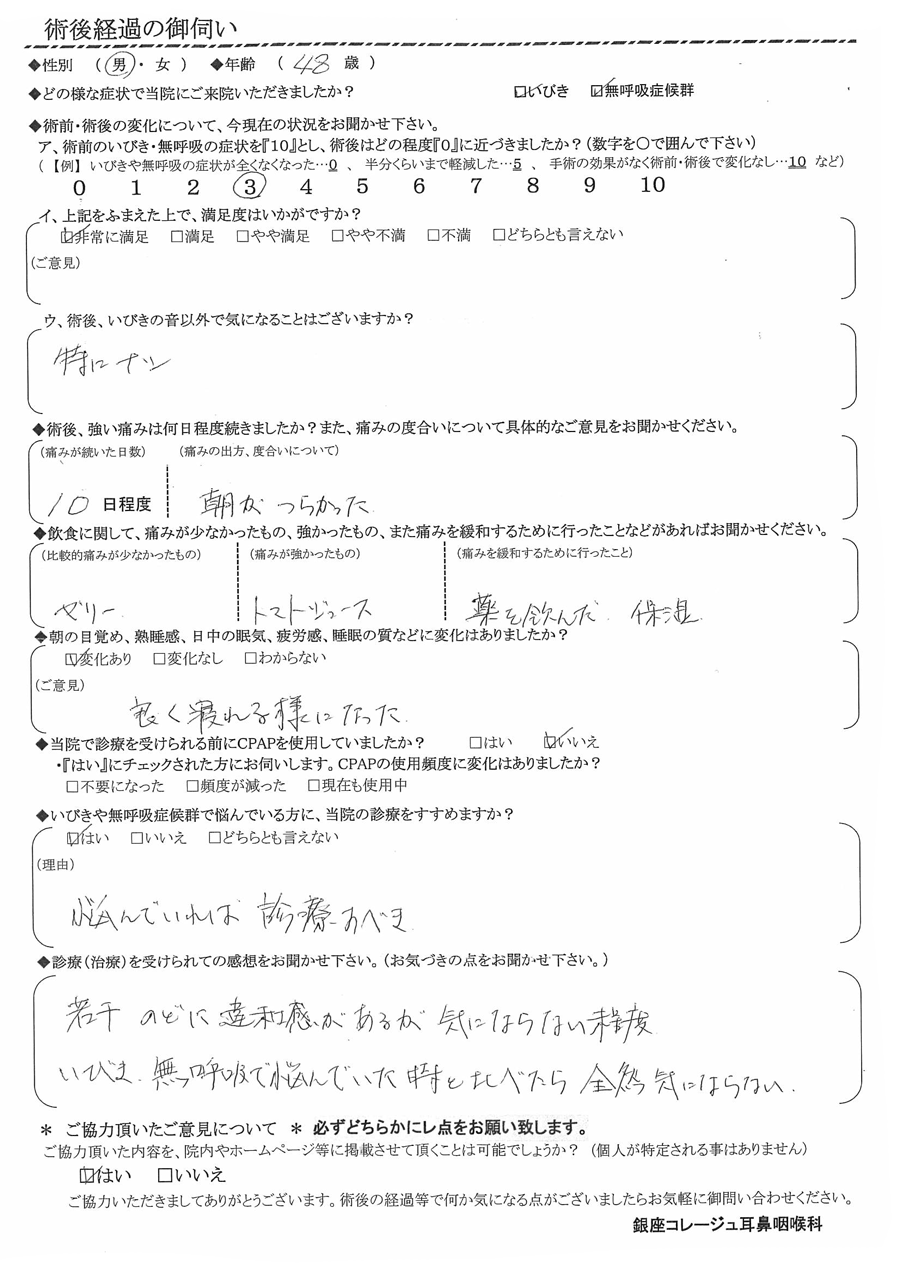 術後経過の御伺い
◆性別 ( 男 ・ 女 ) ◆年齢 ( 48 歳 )
◆どの様な症状で当院にご来院いただきましたか? ☑いびき ☑無呼吸症候群
◆術前・術後の変化について、今現在の状況をお聞かせ下さい。
ア、術前のいびき・無呼吸の症状を『10』とし、術後はどの程度『0』に近づきましたか?(数字を〇で囲んで下さい)
(【例】いびきや無呼吸の症状が全くなくなった…0 、 半分くらいまで軽減した…5 、 手術の効果がなく術前・術後で変化なし…10 など)
0 1 2 3 4 5 6 7 8 9 10
イ、上記をふまえた上で、満足度はいかがですか?
☑非常に満足 □満足 □やや満足 □やや不満 □不満 □どちらとも言えない
(ご意見)
ウ、術後、いびきの音以外で気になることはございますか?
特にナシ
◆術後、強い痛みは何日程度続きましたか?また、痛みの度合いについて具体的なご意見をお聞かせください。
(痛みが続いた日数) (痛みの出方、度合いについて)
10 日程度 朝が つらかった
◆飲食に関して、痛みが少なかったもの、強かったもの、また痛みを緩和するために行ったことなどがあればお聞かせください。
(比較的痛みが少なかったもの) (痛みが強かったもの) (痛みを緩和するために行ったこと)
ゼリー トマトジュース 薬を飲んだ 保湿
◆朝の目覚め、熟睡感、日中の眠気、疲労感、睡眠の質などに変化はありましたか?
☑変化あり □変化なし □わからない
(ご意見)
良く寝れる様になった
◆当院で診療を受けられる前にCPAPを使用していましたか? □はい ☑いいえ
・『はい』にチェックされた方にお伺いします。CPAPの使用頻度に変化はありましたか?
□不要になった □頻度が減った □現在も使用中
◆いびきや無呼吸症候群で悩んでいる方に、当院の診療をすすめますか?
☑はい □いいえ □どちらとも言えない
(理由)
悩んでいれば 診療すべき
◆診療(治療)を受けられての感想をお聞かせ下さい。(お気づきの点をお聞かせ下さい。)
若干 のどに違和感があるが 気にならない程度
いびき、無呼吸で悩んでいた時と比べたら 全然気にならない.
＊ ご協力頂いたご意見について ＊ 必ずどちらかにレ点をお願い致します。
ご協力頂いた内容を、院内やホームページ等に掲載させて頂くことは可能でしょうか? (個人が特定される事はありません)
☑はい □いいえ
ご協力いただきましてありがとうございます。術後の経過等で何か気になる点がございましたらお気軽に御問い合わせください。
銀座コレージュ耳鼻咽喉科